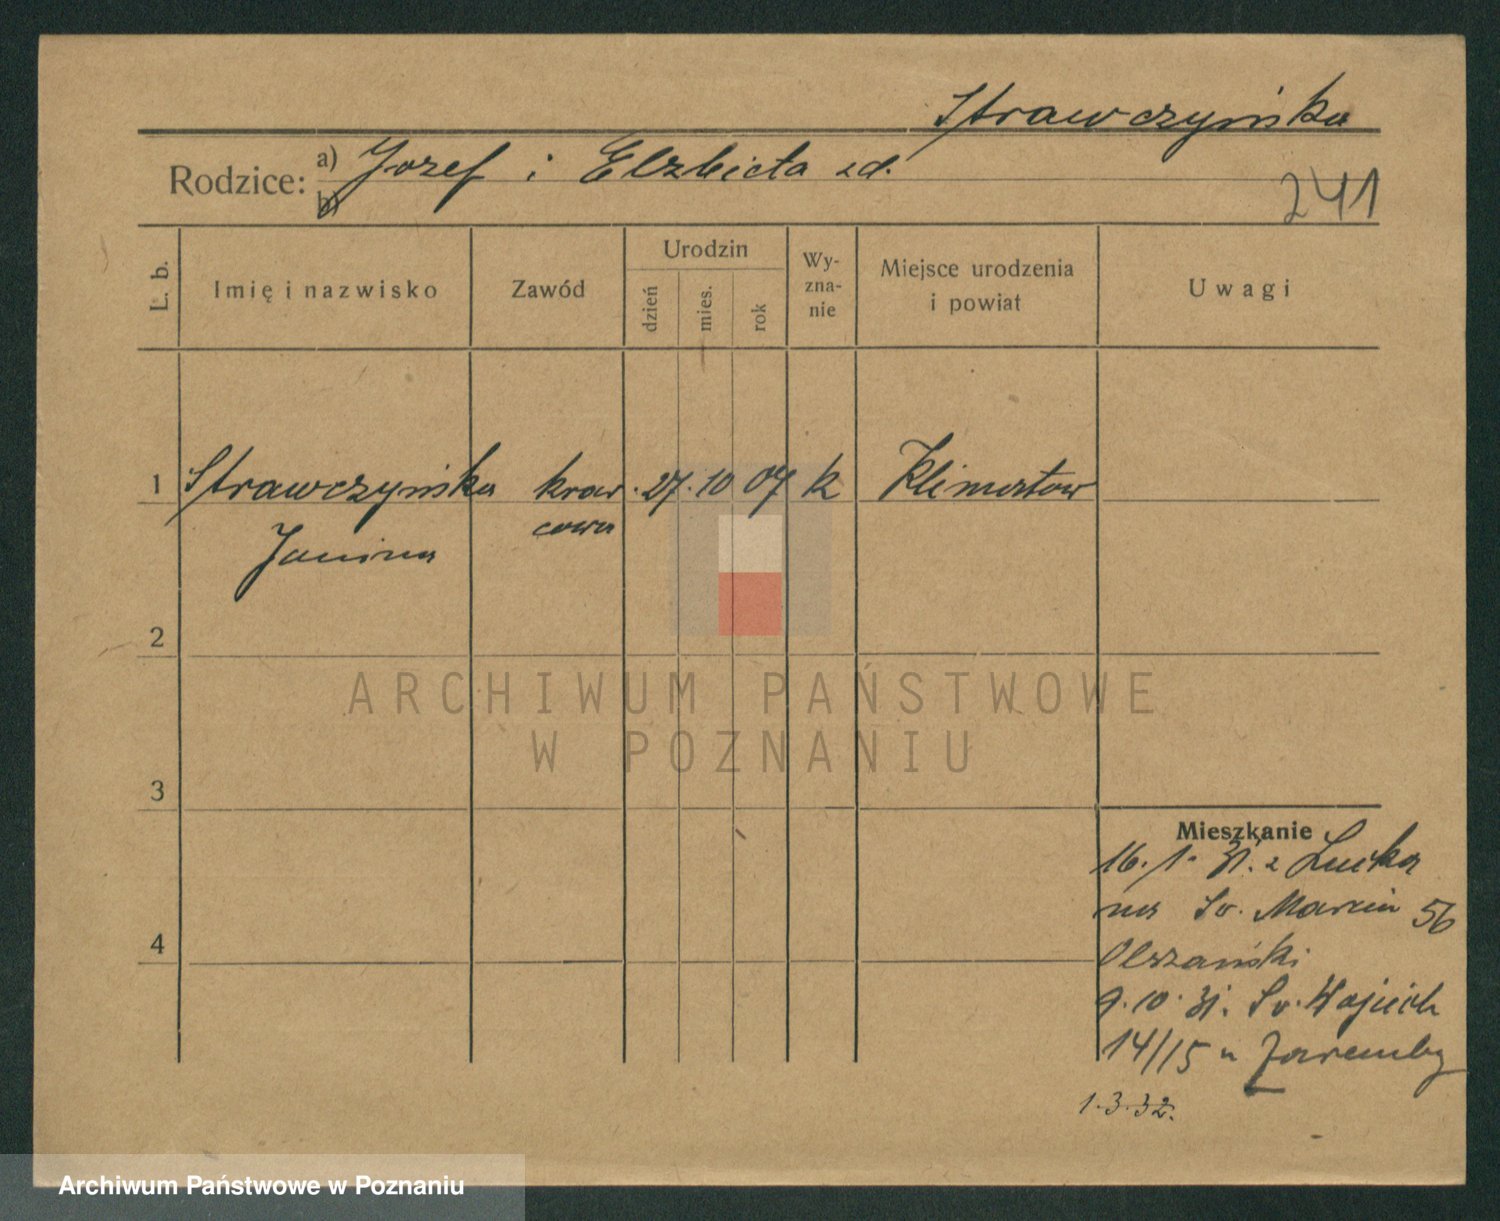 Strawczyńska
Rodzice: a) Jozef i Elzbieta zd.
b)
241
L. b.
Imię i nazwisko
Zawód
Urodzin
dzień
mies.
rok
Wy-
zna-
nie
Miejsce urodzenia
i powiat
Uwagi
1 Strawczyńska kraw. 27. 10 07 k Klimontow
Janina cowa
2
ARCHIWUM PAŃSTWOWE
W POZNANIU
3
Mieszkanie
16. 1. 31. z Lucka
na Sw. Marcin 56
Olszański
4
9. 10. 31. Sw. Wojciech
14/15 u Zaremby
1. 3. 32.
Archiwum Państwowe w Poznaniu